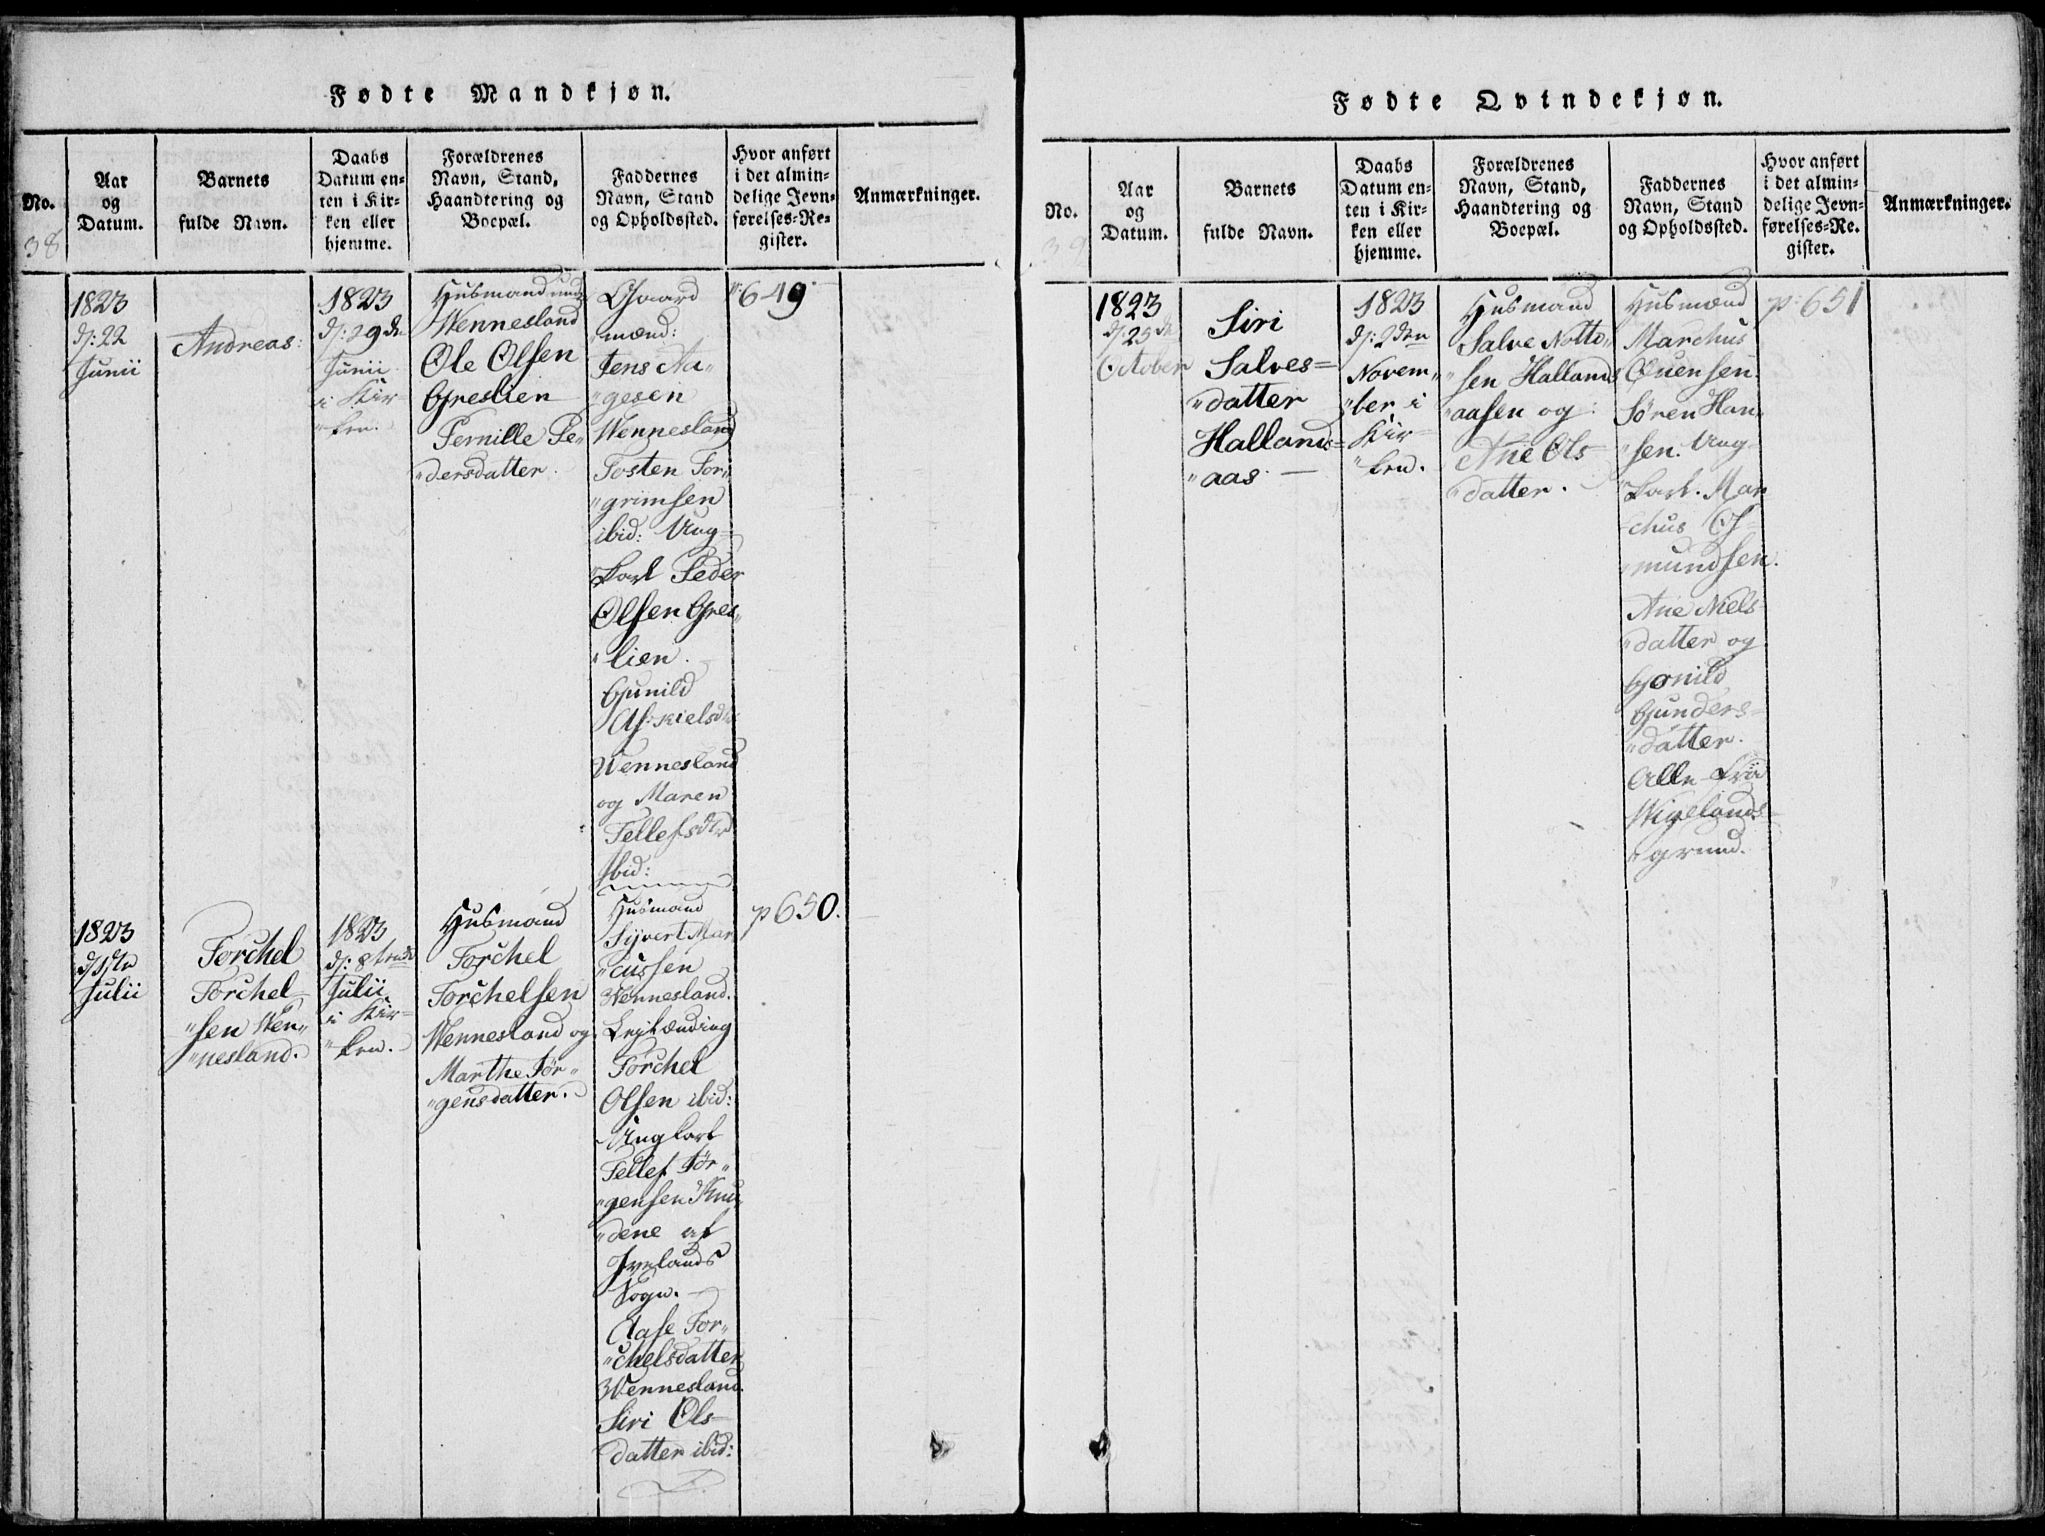 Fødte Mandkjøn.
No.
Aar
og
Datum.
Barnets
fulde Navn.
Daabs
Datum en-
ten i Kir-
ken eller
hjemme.
Forældrenes
Navn, Stand,
Haandtering og
Boepæl.
Faddernes
Navn, Stand
og Opholdssted.
Hvor anført
i det almin-
delige Jevn-
førelses-Re-
gister.
Anmærkninger.
38
1823
d: 22
Junii
Andreas:
1823
d: 29de
Junii
i Kir
"ken.
Husmand
Wennesland
Ole Olsen
Greslien
Pernille Pe-
"dersdatter.
Gaard
mænd:
Jens Aa-
"gesen
Wennesland
Tosten Tor-
"grimsen
ibid: Ung-
"karl Peder
Olsen Gres-
"lien.
Gunild
As-kielsdtr
Wennesland
og Maren
Tellefsdtr
ibid:
p 649
1823
d 1ste
Julii
Torchel
Torchel-
"sen Wen-
"nesland.
1823
d: 8tende
Julii
i Kir-
"ken.
Husmand
Torchel
Torchelsen
Wennesland og
Marthe Jør-
"gensdatter.
Husmand
Sijvert Mar
"cussen
Wennesland.
Lejlænding
Torchel
Olsen ibid:
Ungkarl
Tellef Jør-
"gensen Knu-
"dene af
Ivelands
Sogn.
Aase Tor-
"chelsdatter
Wennesland.
Siri Ols-
datter ibid:
p 650.
Fødte Qvindekjøn.
No.
Aar
og
Datum.
Barnets
fulde Navn.
Daabs
Datum en-
ten i Kir-
ken eller
hjemme.
Forældrenes
Navn, Stand,
Haandtering og
Boepæl.
Faddernes
Navn, Stand
og Opholdssted.
Hvor anført
i det almin-
delige Jevn-
førelses-Re-
gister.
Anmærkninger.
39
1823
d: 25de
October
Siri
Salves-
"datter
Hallands-
"aas.
1823
d: 2den
Novem-
"ber i
Kir-
"ken.
Husmand
Salve Notto-
"sen Hallands
"aasen og
Ane Ols-
"datter.
Husmænd
Marchus
Ouensen.
Søren Han-
"sen. Ung-
"karl. Mar
"chus Os-
"mundsen.
Ane Niels
"datter og
Gonild
Gunders-
"datter.
Alle fra
Wigelands-
"grund.
p: 651